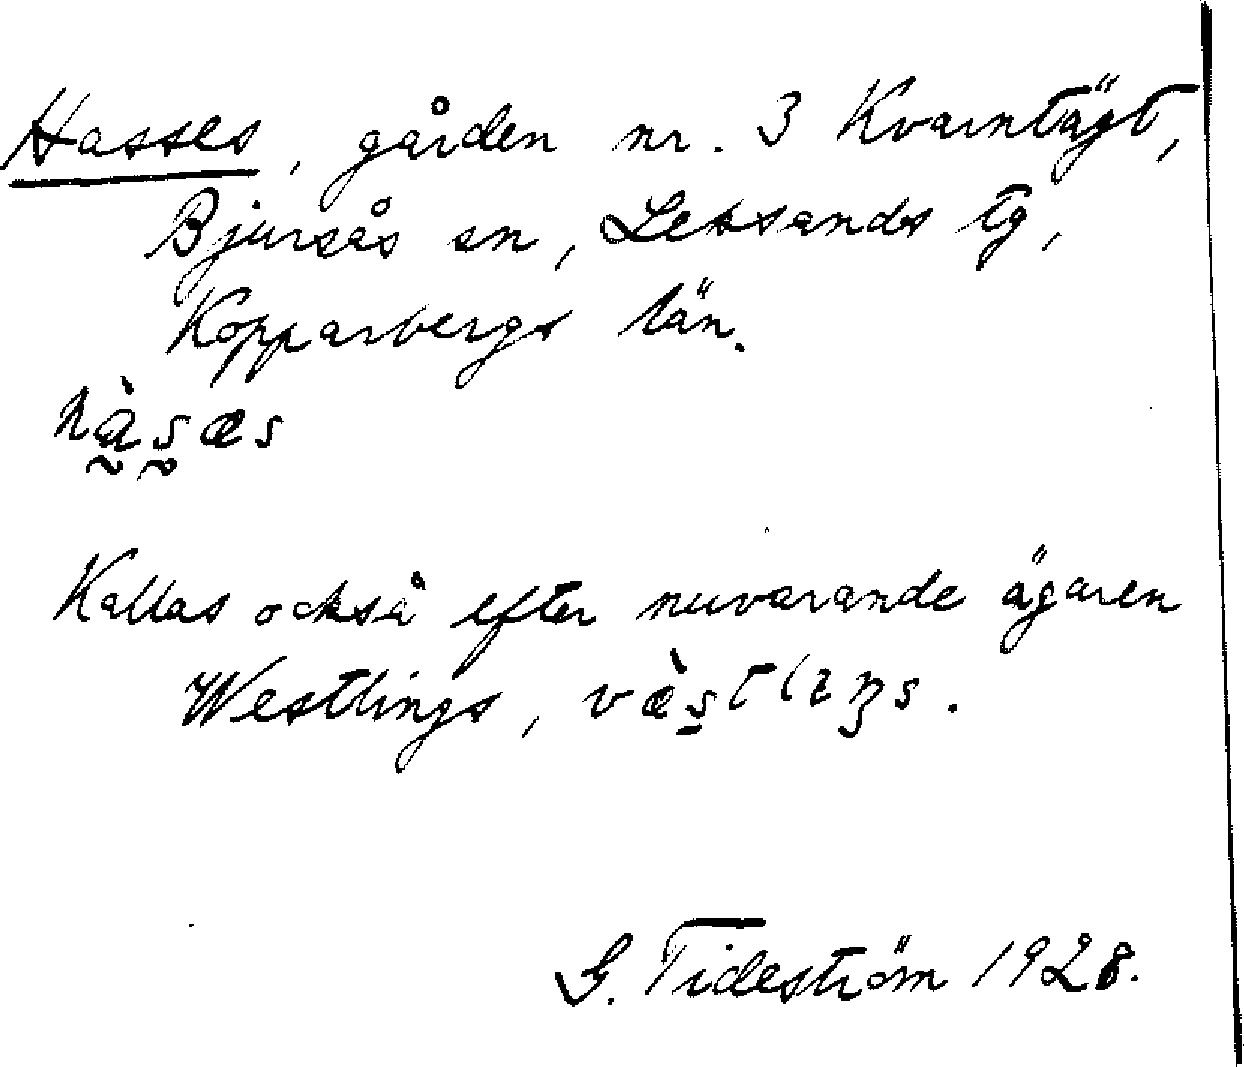 Hasses, gården nr. 3 Kvarntägt,
Bjursås sn, Leksands tg,
Kopparbergs län.
hàsæs
Kallas också efter nuvarande ägaren
Westlings, væ̀stlıŋs.
G. Tideström 1928.